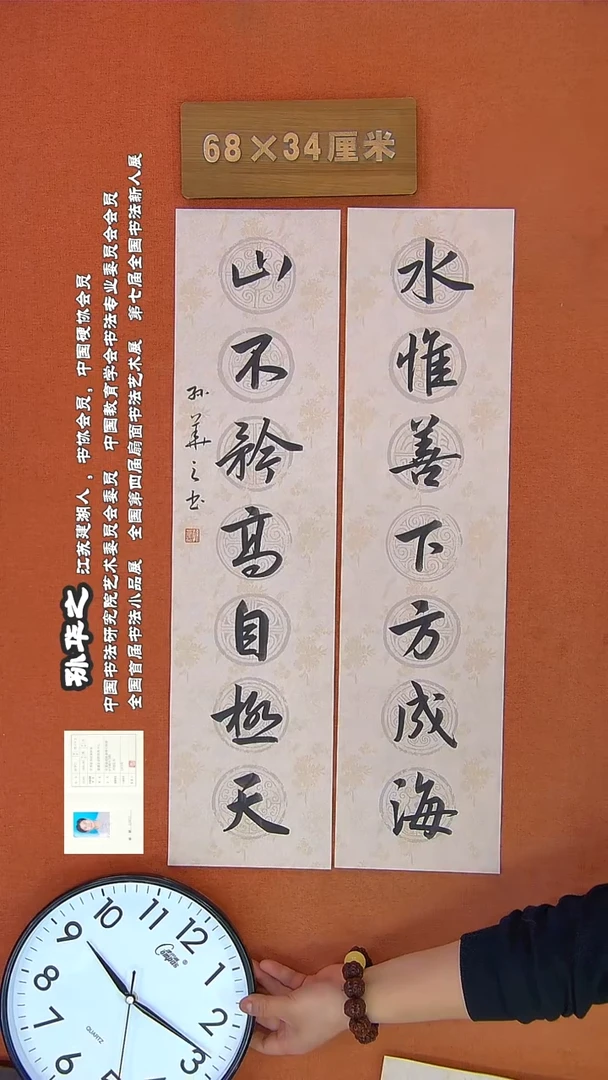 68×34厘米
水惟善下方成海
山不矜高自极天
孙华之书
孙华之 江苏建湖人,书协会员,中国硬协会员
中国书法研究院艺术委员会委员 中国教育学会书法专业委员会会员
全国首届书法小品展 全国第四届扇面书法艺术展 第七届全国书法新人展
12
1
2
3
6
7
8
9
10
11
Compas
QUARTZ